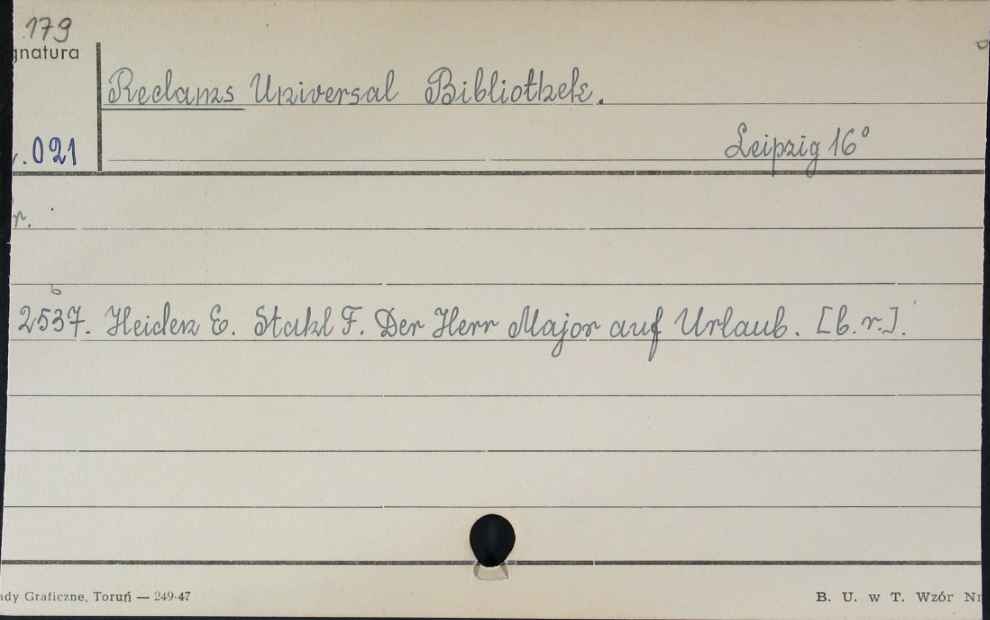 179
gnatura
Reclams Universal Bibliothek.
.021
Leipzig 16°
r.
2537. Heiden E. Stahl F. Der Herr Major auf Urlaub. [b.r.].
ady Graficzne, Toruń — 249-47
B. U. w T. Wzór Nr